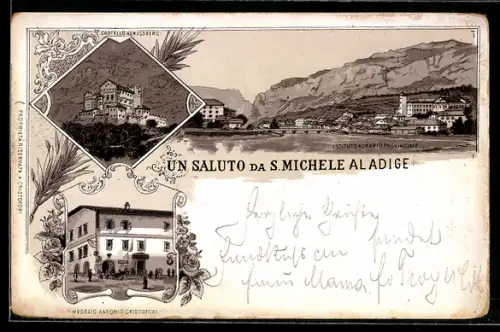 CASTELLO KÖNIGSBERG
ISTITUTO AGRARIO PROVINCIALE
UN SALUTO DA S. MICHELE ALADIGE
PROPRIETA RISERVATA A. CRISTOFORI
NEGOZIO ANTONIO CRISTOFORI
Herzliche Grüße
Handkuss
sendet
Mama